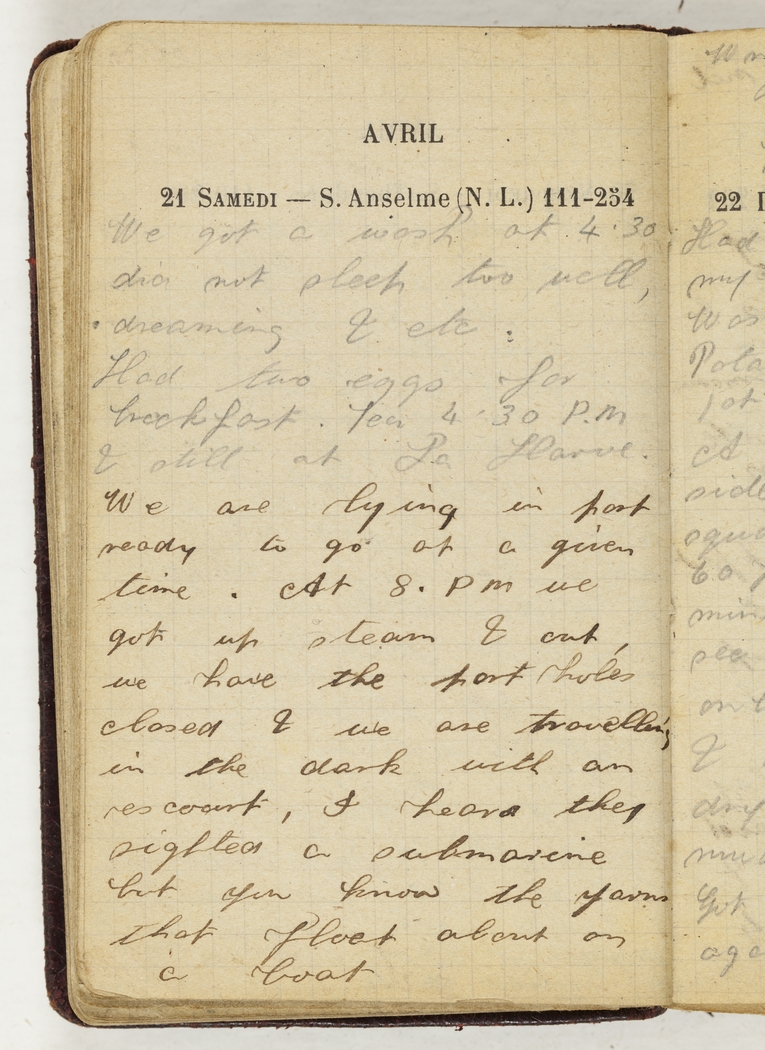 AVRIL
21 SAMEDI — S. Anselme (N. L.) 111-254
We got a wash at 4.30
did not sleep too well,
dreaming & etc.
Had two eggs for
breckfast. Tea 4.30 P.M
& still at La Harve.
We are lying in port
ready to go at a given
time. At 8. PM we
got up steam & out,
we have the port holes
closed & we are travelling
in the dark with an
rescourt, I heard they
sighted a submarine
but you know the yarns
that float about on
a boat
22
Had
my
Was
Pola
lot
At
side
squa
60
min
see
on
&
dry
Got
aga